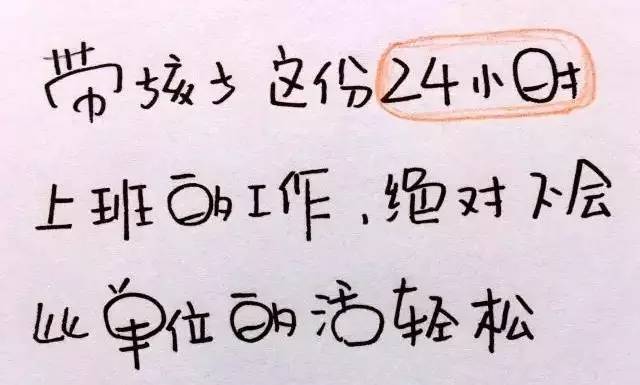 带孩子这份24小时
上班的工作,绝对不会
比单位的活轻松